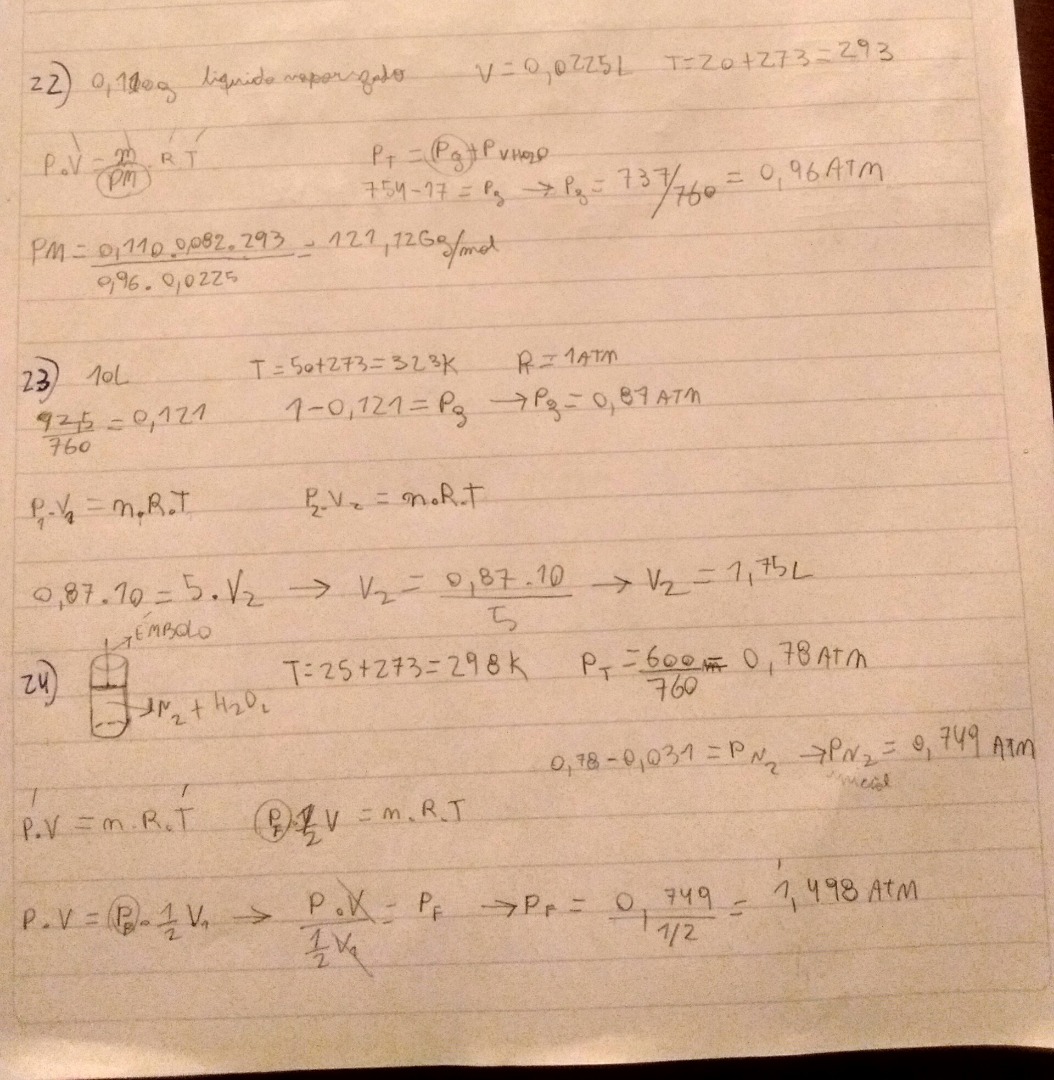 22) 0,110g liquido vaporizado V = 0,0225L T=20+273=293
P.V = m/PM . R T PT = Pg + PVH2O
754-17 = Pg → Pg = 737/760 = 0,96 ATM
PM = 0,110.0,082.293 / 0,96.0,0225 = 121,126g/mol
23) 10L T = 50+273 = 323K P = 1ATM
92,5/760 = 0,121 1-0,121 = Pg → Pg = 0,87 ATM
P1.V1 = n.R.T P2.V2 = n.R.T
0,87.10 = 5.V2 → V2 = 0,87.10/5 → V2 = 1,75L
→ ÊMBOLO
24) T = 25+273 = 298K PT = 600/760 = 0,78 ATM
→ N2 + H2O2
0,78-0,031 = PN2 → PN2 = 0,749 ATM
inicial
P.V = n.R.T PF.1/2 V = n.R.T
P.V = PF.1/2 V1 → P.V / 1/2 V1 = PF → PF = 0,749 / 1/2 = 1,498 ATM